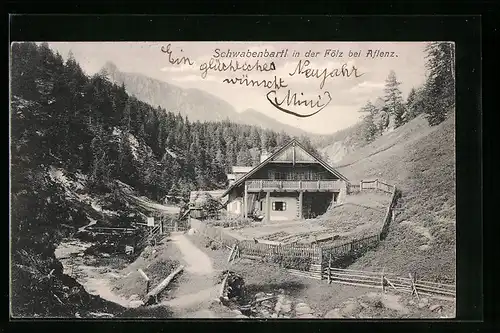 Schwabenbartl in der Fölz bei Aflenz.
Ein glückliches Neujahr
wünscht
Mini